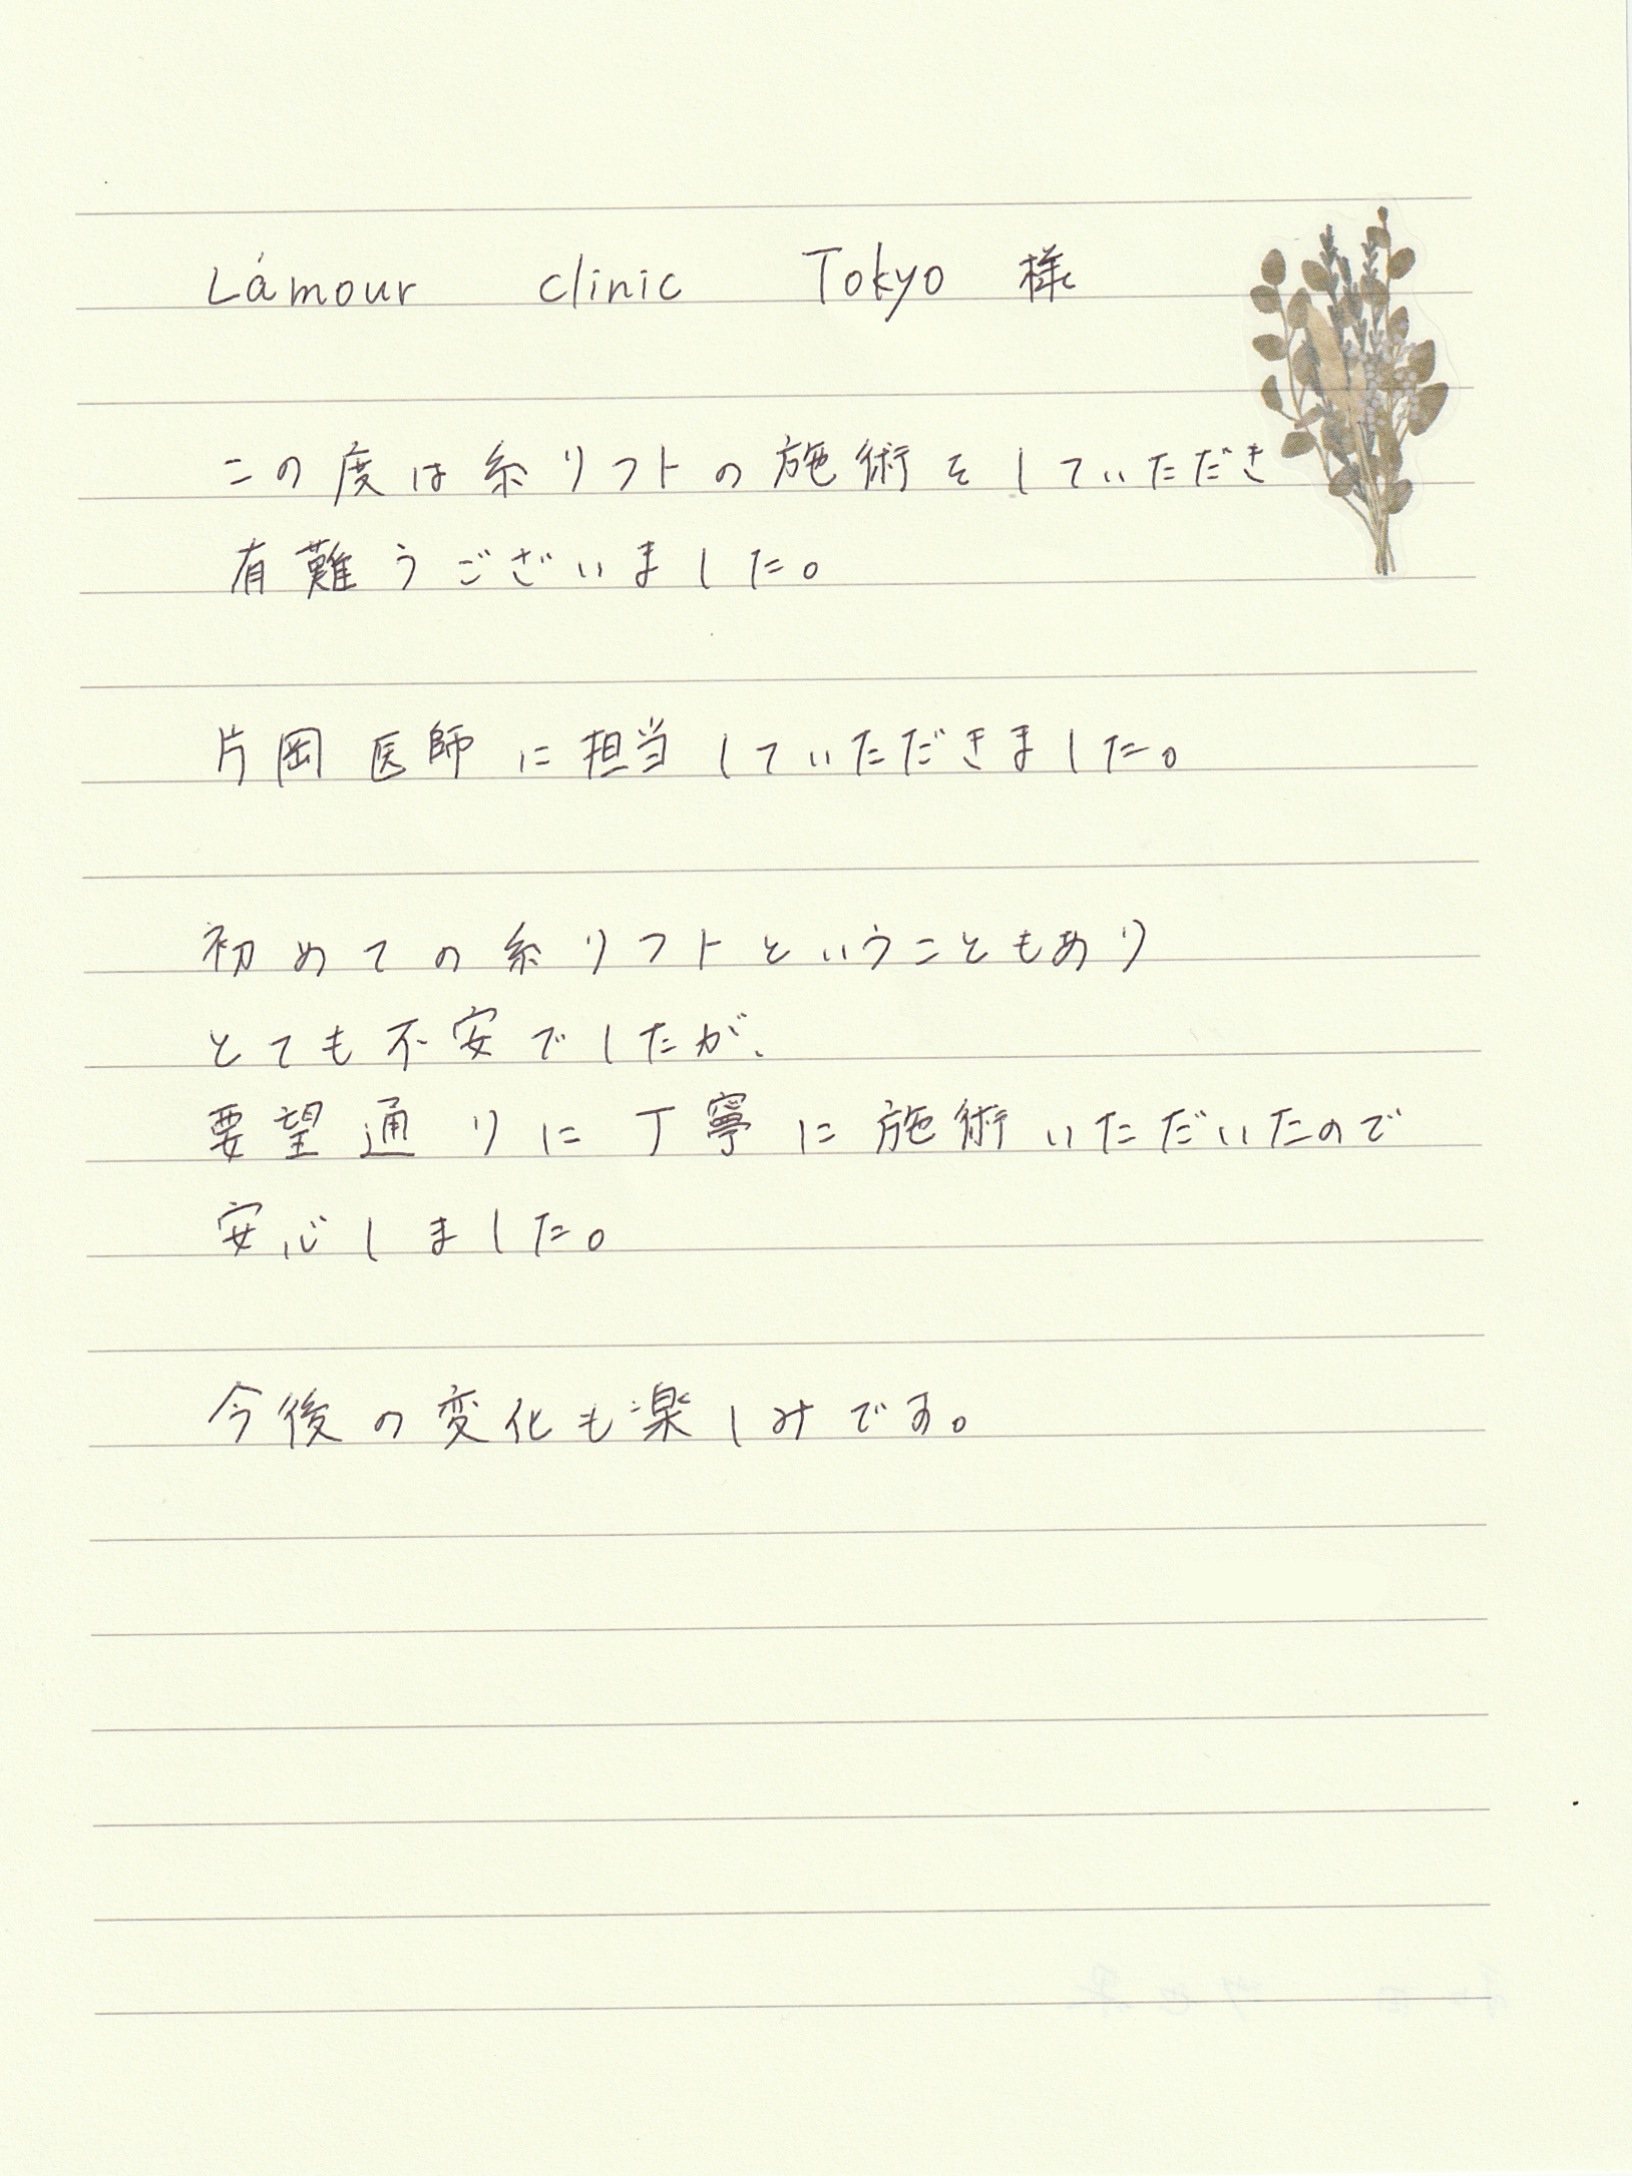 L'amour clinic Tokyo 様
この度は糸リフトの施術をしていただき
有難うございました。
片岡医師に担当していただきました。
初めての糸リフトということもあり
とても不安でしたが、
要望通りに丁寧に施術いただいたので
安心しました。
今後の変化も楽しみです。